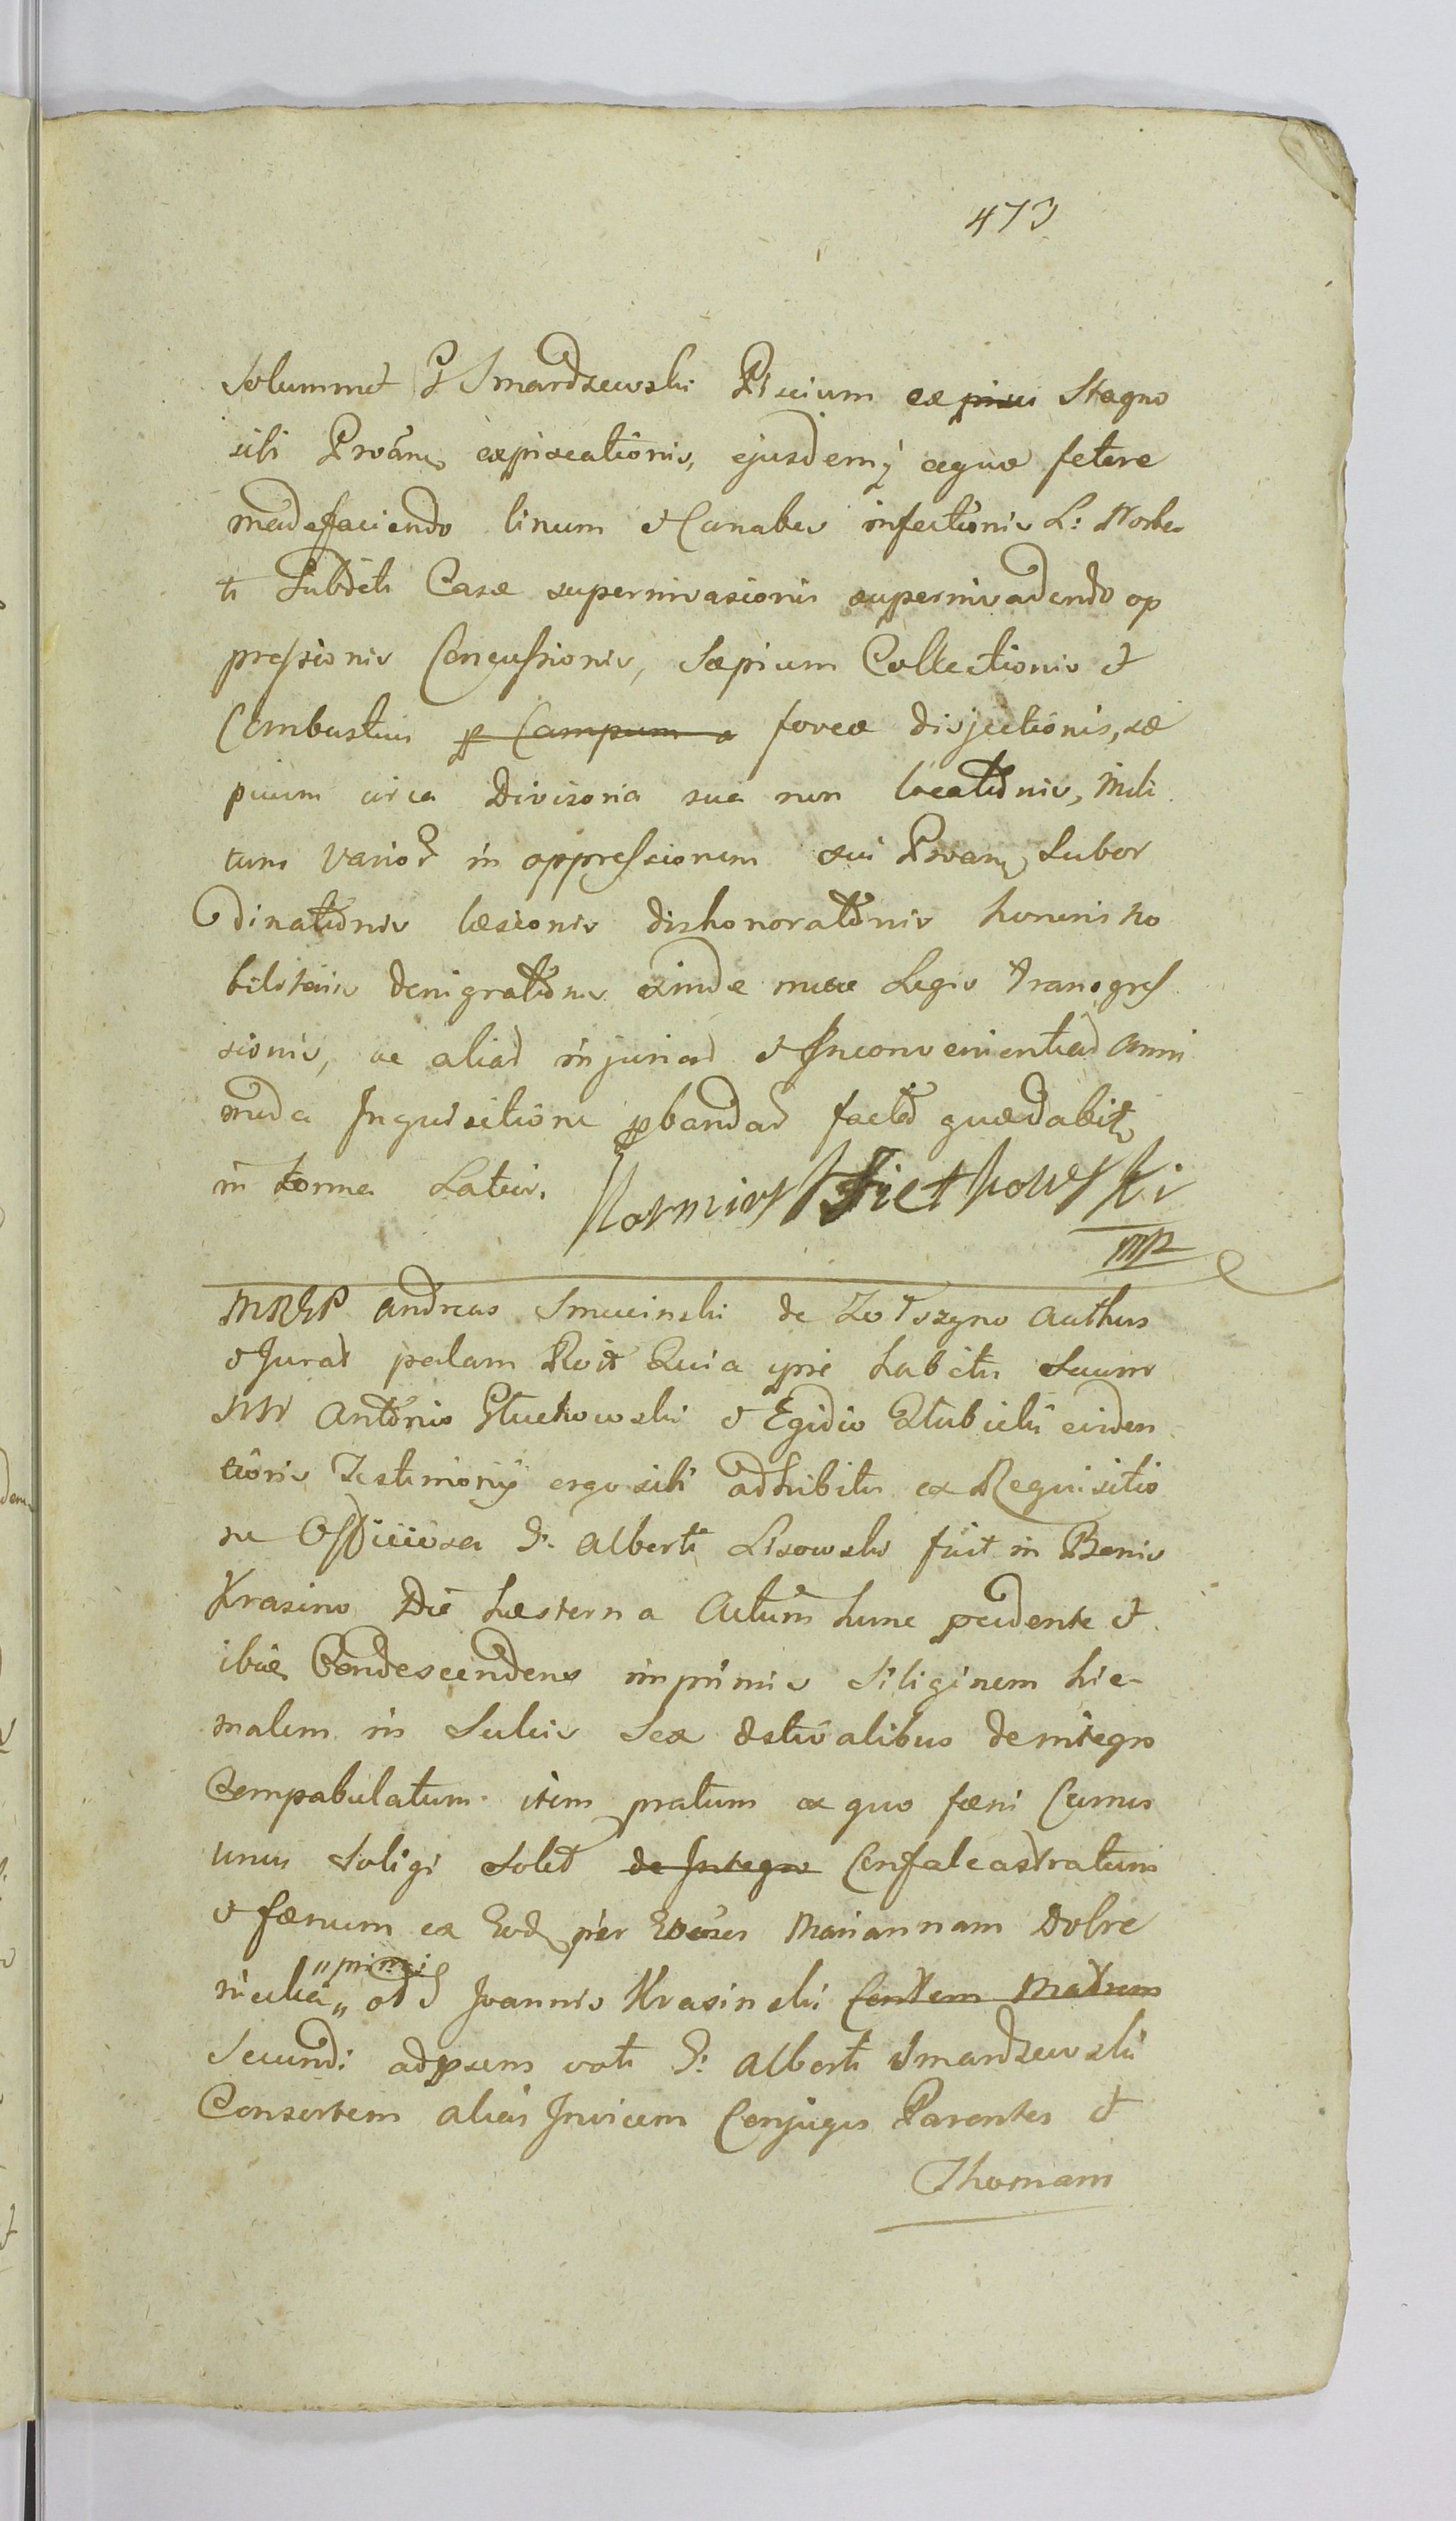 473
Solummet G Smardzewski Piscium ex Stagno
sibi Proãnis expiscationis, ejusdemq aquæ fetore
madefaciendo linum et Canabes infectionis L: Norber
ti Subditi Casæ superinvasionis superinvadendo op
pressionis Concussionis, Sæpium Collectionis et
Combustius p Campum a foveæ disjectionis, sæ
pium circa Divisoria sua non locationis, Mili
tum Varior in oppressionem sui Proãnis Subor
dinationis læsionis dishonorationis honoris no
bilitatis denigrationis exinde Legis transgres
sionis, ac aliad injuriad et Inconvenientiad omni
moda Inquisitione pbandad facto quædabit
in forma Latius.
MRGP Andreas Smucinski de Zotszyno Authus
et Jurat palam Roit Quia ipse habitis Secum
NN Antonio Gluchowski et Egidio Klubicki eviden
tioris Testimonij ergo sibi adhibitis ex Requisitio
ne Officiosa G. Alberti Lisowski fuit in Bonis
Krasino Die hæsterna Actum hunc pcedente et
ibiq Condescendens imprimis Siliginem hie-
malem in Sulcis Sex æstivalibus de integro
Compabulatum item pratum ex quo fæni Currus
unus Soligi Solet de Integro Confalcastratum
et fænum ex Eod per Mariannam Dobrc
nicka „ primi „ ol G Joannis Krasinski
Secundi adpsens voti G: Alberti Smardzewski
Consortem alias Invicem Conjuges Parentes et
Thomam